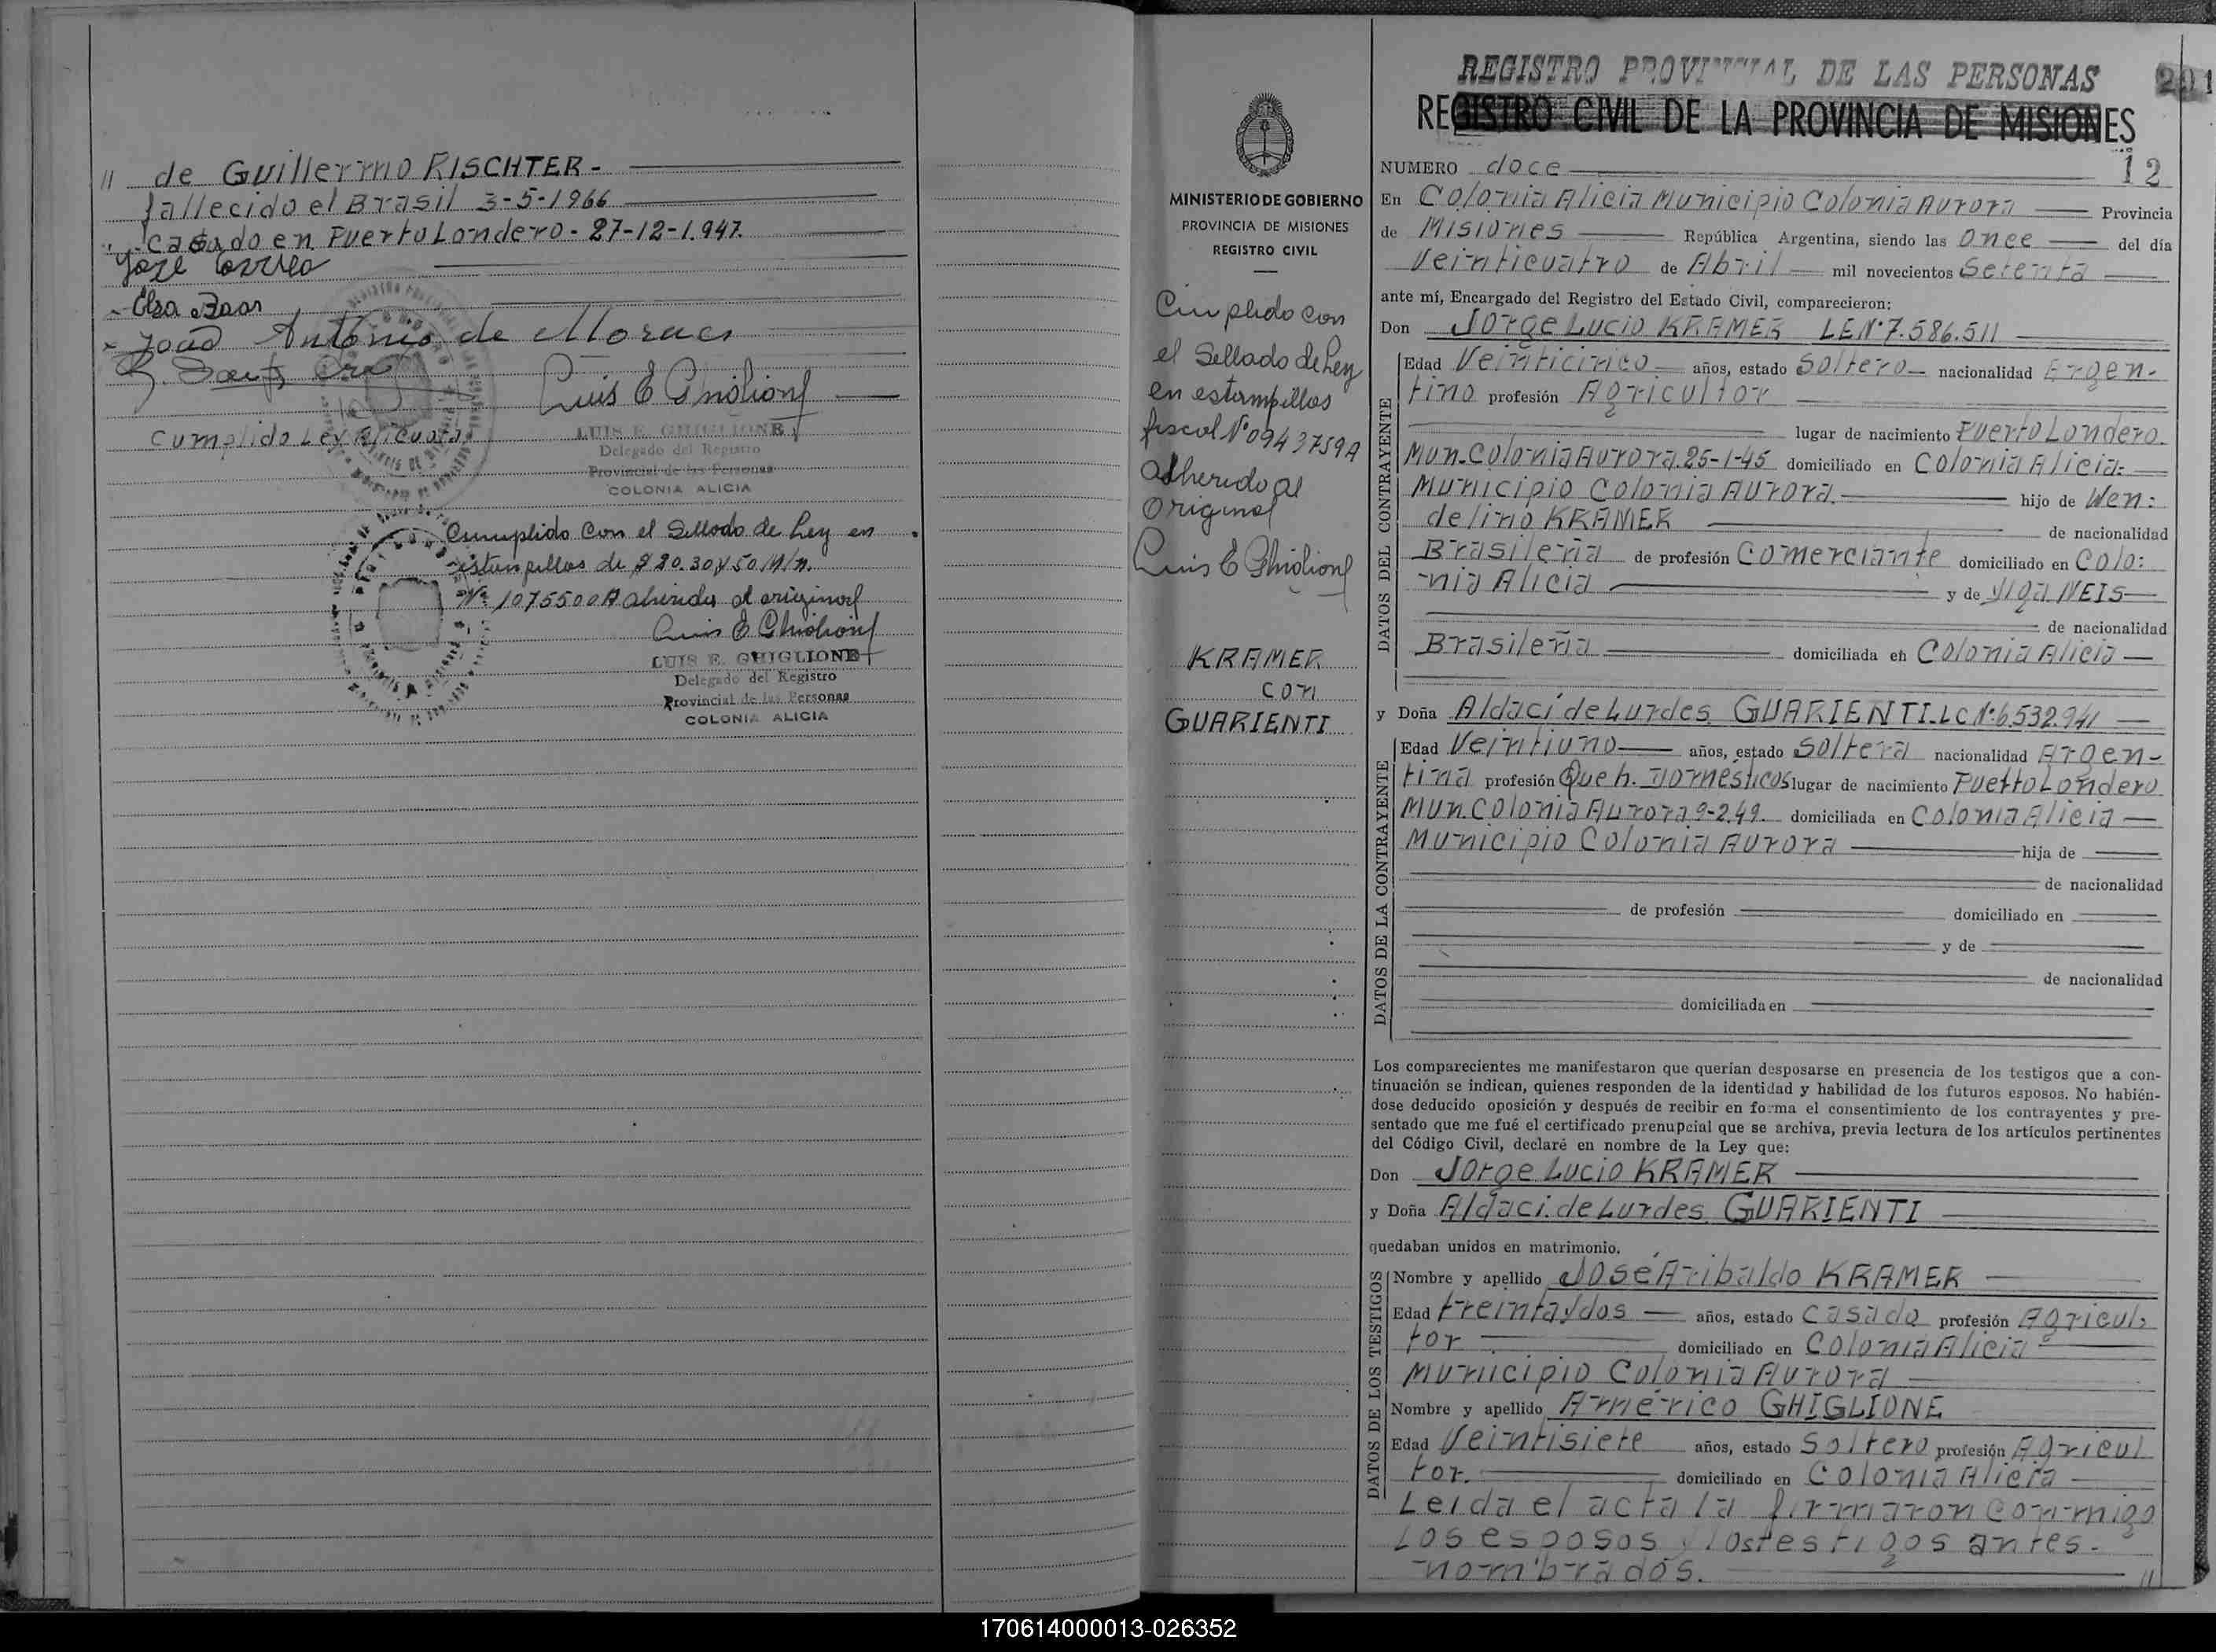 // de Guillermo RISCHTER -
fallecido el Brasil 3-5-1966
- casado en Puerto Londero - 27-12-1.947.
José Correa
- Elsa
- João Antônio de Moraes
Luis E Ghiglione
Cumplido Ley Alicuota
LUIS E. GHIGLIONE
Delegado del Registro
Provincial de las Personas
COLONIA ALICIA
Cumplido con el Sellado de Ley en
estampillas de $ 20.30 y 50 M/n.
Nº 1075500A adheridas al original
Luis E Ghiglione
LUIS E. GHIGLIONE
Delegado del Registro
Provincial de las Personas
COLONIA ALICIA
MINISTERIO DE GOBIERNO
PROVINCIA DE MISIONES
REGISTRO CIVIL
Cumplido con
el Sellado de Ley
en estampillas
fiscal Nº 0943759A
adherido al
Original
Luis E Ghiglione
KRAMER
con
GUARIENTI
REGISTRO PROVINCIAL DE LAS PERSONAS 201
REGISTRO CIVIL DE LA PROVINCIA DE MISIONES
NUMERO doce 12
En Colonia Alicia Municipio Colonia Aurora Provincia
de Misiones República Argentina, siendo las Once del día
Veinticuatro de Abril mil novecientos Setenta
ante mí, Encargado del Registro del Estado Civil, comparecieron:
Don Jorge Lucio KRAMER LE Nº 7.586.511
DATOS DEL CONTRAYENTE
Edad Veinticinco años, estado Soltero nacionalidad Argen-
tino profesión Agricultor
lugar de nacimiento Puerto Londero.
Mun. Colonia Aurora. 25-1-45 domiciliado en Colonia Alicia.
Municipio Colonia Aurora. hijo de Wen:
delino KRAMER de nacionalidad
Brasileña de profesión Comerciante domiciliado en Colo:
nia Alicia y de NEIS
de nacionalidad
Brasileña domiciliada en Colonia Alicia
y Doña Aldaci de Lurdes GUARIENTI. LC Nº 6.532.941
DATOS DE LA CONTRAYENTE
Edad Veintiuno años, estado Soltera nacionalidad Argen-
tina profesión Queh. Domésticos lugar de nacimiento Puerto Londero
Mun. Colonia Aurora 9-2.49. domiciliada en Colonia Alicia
Municipio Colonia Aurora hija de
de nacionalidad
de profesión domiciliado en
y de
de nacionalidad
domiciliada en
Los comparecientes me manifestaron que querían desposarse en presencia de los testigos que a con-
tinuación se indican, quienes responden de la identidad y habilidad de los futuros esposos. No habién-
dose deducido oposición y después de recibir en forma el consentimiento de los contrayentes y pre-
sentado que me fué el certificado prenupcial que se archiva, previa lectura de los artículos pertinentes
del Código Civil, declaré en nombre de la Ley que:
Don Jorge Lucio KRAMER
y Doña Aldaci. de Lurdes GUARIENTI
quedaban unidos en matrimonio.
DATOS DE LOS TESTIGOS
Nombre y apellido José Aribaldo KRAMER
Edad treinta y dos años, estado Casado profesión Agricul:
tor domiciliado en Colonia Alicia
Municipio Colonia Aurora
Nombre y apellido Américo GHIGLIONE
Edad Veintisiete años, estado Soltero profesión Agricul
tor. domiciliado en Colonia Alicia
Leida el acta la firmaron conmigo
los esposos y los testigos antes-
nombrados. //
170614000013-026352